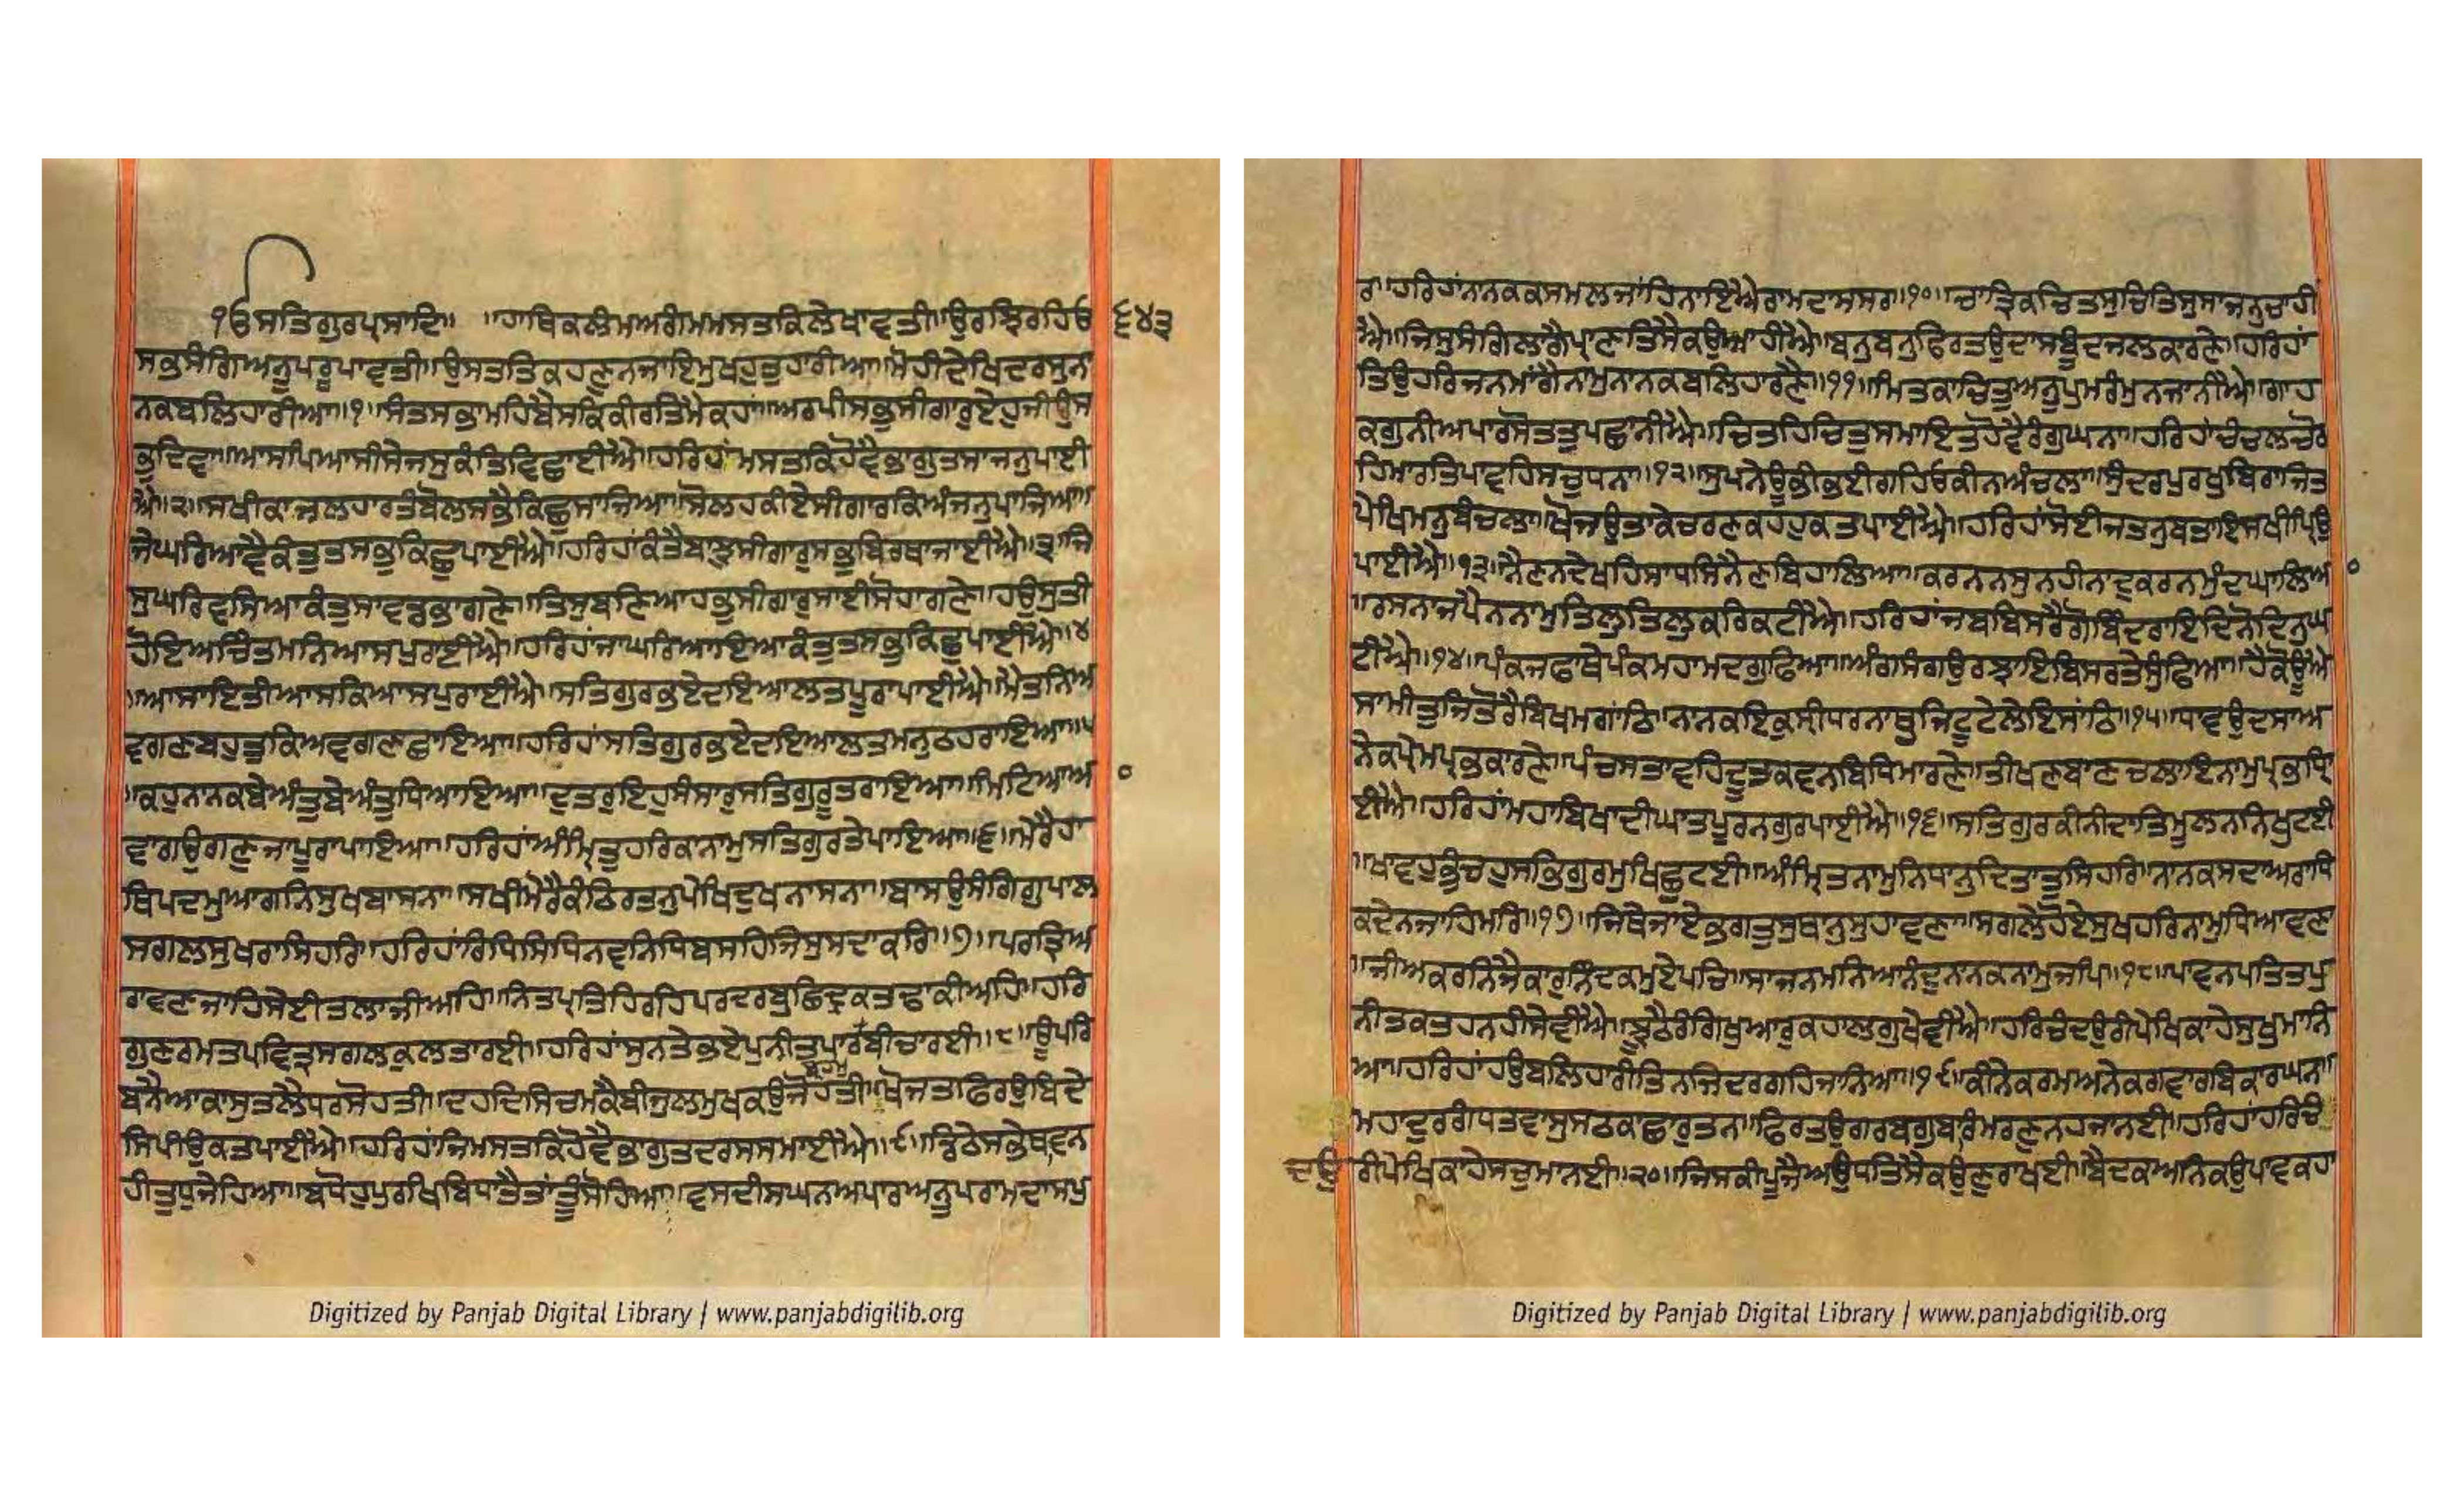 ੧ੴਸਤਿਗੁਰਪ੍ਰਸਾਦਿ॥ ॥ਹਾਥਿਕਲੰਮਅਗੰਮਮਸਤਕਿਲੇਖਾਵਤੀ॥ਉਰਝਿਰਹਿਓ ੬੪੩
ਸਭਸੰਗਿਅਨੂਪਰੂਪਾਵਤੀ॥ਉਸਤਤਿਕਹਣੁਨਜਾਇਮੁਖਹੁਤੁਹਾਰੀਆ॥ਮੋਹੀਦੇਖਿਦਰਸੁਨਾ
ਨਕਬਲਿਹਾਰੀਆ॥੧॥ਸੰਤਸਭਾਮਹਿਬੈਸਕਿਕੀਰਤਿਮੈਕਹਾਂ॥ਅਰਪੀਸਭੁਸੀਗਾਰੁਏਹੁਜੀਉਸ
ਭੁਦਿਵਾ॥ਆਸਪਿਆਸੀਸੇਜਸੁਕੰਤਿਵਿਛਾਈਐ॥ਹਰਿਹਾਂਮਸਤਕਿਹੋਵੈਭਾਗੁਤਸਾਜਨੁਪਾਈ
ਐ॥੨॥ਸਖੀਕਾਜਲਹਾਰਤੰਬੋਲਸਭੈਕਿਛੁਸਾਜਿਆ॥ਸੋਲਹਕੀਏਸੀਗਾਰਕਿਅੰਜਨੁਪਾਜਿਆ॥
ਜੇਘਰਿਆਵੈਕੰਤੁਤਸਭੁਕਿਛੁਪਾਈਐ॥ਹਰਿਹਾਂਕੰਤੈਬਾਝੁਸੀਗਾਰੁਸਭੁਬਿਰਥਾਜਾਈਐ॥੩॥ਜਿ
ਸੁਘਰਿਵਸਿਆਕੰਤੁਸਾਵਡਭਾਗਣੇ॥ਤਿਸੁਬਣਿਆਹਭੁਸੀਗਾਰੁਸਾਈਸੋਹਾਗਣੇ॥ਹਉਸੁਤੀ
ਹੋਇਅਚਿੰਤਮਨਿਆਸਪੁਰਾਈਐ॥ਹਰਿਹਾਂਜਾਘਰਿਆਇਆਕੰਤੁਤਸਭੁਕਿਛੁਪਾਈਐ॥੪
॥ਆਸਾਇਤੀਆਸਕਿਆਸਪੁਰਾਈਐ॥ਸਤਿਗੁਰਭਏਦਇਆਲਤਪੂਰਾਪਾਈਐ॥ਮੈਤਨਿਅ
ਵਗਣਬਹੁਤੁਕਿਅਵਗਣਛਾਇਆ॥ਹਰਿਹਾਂਸਤਿਗੁਰਭਏਦਇਆਲਤਮਨੁਠਹਰਾਇਆ॥੫
॥ਕਹੁਨਾਨਕਬੇਅੰਤੁਬੇਅੰਤੁਧਿਆਇਆ॥ਦੁਤਰੁਇਹੁਸੰਸਾਰੁਸਤਿਗੁਰੂਤਰਾਇਆ॥ਮਿਟਿਆਆ
ਵਾਗਉਗਣੁਜਾਪੂਰਾਪਾਇਆ॥ਹਰਿਹਾਂਅੰਮ੍ਰਿਤੁਹਰਿਕਾਨਾਮੁਸਤਿਗੁਰਤੇਪਾਇਆ॥੬॥ਮੇਰੈਹਾ
ਥਿਪਦਮੁਆਗਨਿਸੁਖਬਾਸਨਾ॥ਸਖੀਮੋਰੈਕੰਠਿਰਤਨੁਪੇਖਿਦੁਖਨਾਸਨਾ॥ਬਾਸਉਸੰਗਿਗੁਪਾਲ
ਸਗਲਸੁਖਰਾਸਿਹਰਿ॥ਹਰਿਹਾਂਰਿਧਿਸਿਧਿਨਵਨਿਧਿਬਸਹਿਜਿਸੁਸਦਾਕਰਿ॥੭॥ਪਰਤ੍ਰਿਅ
ਰਾਵਣਜਾਹਿਸੇਈਤਾਲਾਜੀਅਹਿ॥ਨਿਤਪ੍ਰਤਿਹਿਰਹਿਪਰਦਰਬੁਛਿਦ੍ਰਕਤਢਾਕੀਅਹਿ॥ਹਰਿ
ਗੁਣਰਮਤਪਵਿਤ੍ਰਸਗਲਕੁਲਤਾਰਈ॥ਹਰਿਹਾਂਸੁਨਤੇਭਏਪੁਨੀਤਪਾਰਬ੍ਰਹਮੁਬੀਚਾਰਈ॥੮॥ਊਪਰਿ
ਬਨੈਆਕਾਸੁਤਲੈਧਰਸੋਹਤੀ॥ਦਹਦਿਸਿਚਮਕੈਬੀਜੁਲਮੁਖਕਉਜੋਹਤੀ॥ਖੋਜਤਫਿਰਉਬਿਦੇ
ਸਿਪੀਉਕਤਪਾਈਐ॥ਹਰਿਹਾਂਜਿਮਸਤਕਿਹੋਵੈਭਾਗੁਤਦਰਸਸਮਾਈਐ॥੯॥ਡਿਠੇਸਭੇਥਾਵਨ
ਹੀਤੁਧੁਜੇਹਿਆ॥ਬਧੋਹੁਪੁਰਖਿਬਿਧਾਤੈਤਾਂਤੂਸੋਹਿਆ॥ਵਸਦੀਸਘਨਅਪਾਰਅਨੂਪਰਾਮਦਾਸਪੁ
ਰਾ॥ਹਰਿਹਾਂਨਾਨਕਕਸਮਲਜਾਹਿਨਾਇਐਰਾਮਦਾਸਸਰ॥੧੦॥ਚਾਤ੍ਰਿਕਚਿਤਸੁਚਿਤਿਸੁਸਾਜਨੁਚਾਹੀ
ਐ॥ਜਿਸੁਸੰਗਿਲਾਗੈਪ੍ਰਾਣਤਿਸੈਕਉਆਹੀਐ॥ਬਨੁਬਨੁਫਿਰਤਉਦਾਸਬੂੰਦਜਲਕਾਰਣੇ॥ਹਰਿਹਾਂ
ਤਿਉਹਰਿਜਨਮਾਂਗੈਨਾਮੁਨਾਨਕਬਲਿਹਾਰਣੈ॥੧੧॥ਮਿਤਕਾਚਿਤੁਅਨੂਪੁਮਰੰਮੁਨਜਾਨੀਐ॥ਗਾਹ
ਕਗੁਨੀਅਪਾਰਸੋਤਤੁਪਛਾਨੀਐ॥ਚਿਤਹਿਚਿਤੁਸਮਾਇਤਹੋਵੈਰੰਗੁਘਨਾ॥ਹਰਿਹਾਂਚੰਚਲਚੋਰ
ਹਿਮਾਰਤਿਪਾਵਹਿਸਚੁਧਨਾ॥੧੨॥ਸੁਪਨੇਊਭੀਭਈਗਹਿਓਕੀਨਾਅੰਚਲਾ॥ਸੁੰਦਰਪੁਰਖੁਬਿਰਾਜਿਤ
ਪੇਖਿਮਨੁਬੰਚਲਾ॥ਖੋਜਉਤਾਕੇਚਰਣਕਹਹੁਕਤਪਾਈਐ॥ਹਰਿਹਾਂਸੋਈਜਤਨੁਬਤਾਇਸਖੀਪ੍ਰਿਉ
ਪਾਈਐ॥੧੩॥ਨੈਣਨਦੇਖਹਿਸਾਧਸਿਨੈਣਬਿਹਾਲਿਆ॥ਕਰਨਨਸੁਨਹੀਨਾਦੁਕਰਨਮੁੰਦਿਘਾਲਿਆ
॥ਰਸਨਾਜਪੈਨਨਾਮੁਤਿਲੁਤਿਲੁਕਰਿਕਟੀਐ॥ਹਰਿਹਾਂਜਬਬਿਸਰੈਗੋਬਿੰਦਰਾਇਦਿਨੋਦਿਨੁਘ
ਟੀਐ॥੧੪॥ਪੰਕਜਫਾਥੇਪੰਕਮਹਾਮਦਗੁਫਿਆ॥ਅੰਗਸੰਗਉਰਝਾਇਬਿਸਰਤੇਸੁੰਫਿਆ॥ਹੈਕੋਊਐ
ਸਾਮੀਤੁਜਿਤੋਰੈਬਿਖਮਗਾਂਠਿ॥ਨਾਨਕਇਕੁਸ੍ਰੀਧਰਨਾਥੁਜਿਟੂਟੇਲੇਇਸਾਂਠਿ॥੧੫॥ਧਾਵਉਦਸਾਅ
ਨੇਕਪ੍ਰੇਮਪ੍ਰਭਕਾਰਣੇ॥ਪੰਚਸਤਾਵਹਿਦੂਤਕਵਨਬਿਧਿਮਾਰਣੇ॥ਤੀਖਣਬਾਣਚਲਾਇਨਾਮੁਪ੍ਰਭਧ੍ਯਿ
ਾਈਐ॥ਹਰਿਹਾਂਮਹਾਬਿਖਾਦੀਘਾਤਪੂਰਨਗੁਰਪਾਈਐ॥੧੬॥ਸਤਿਗੁਰਕੀਨੀਦਾਤਿਮੂਲਨਨਿਖੁਟਈ
॥ਖਾਵਹੁਭੁੰਚਹੁਸਭਿਗੁਰਮੁਖਿਛੁਟਈ॥ਅੰਮ੍ਰਿਤਨਾਮੁਨਿਧਾਨੁਦਿਤਾਤੁਸਿਹਰਿ॥ਨਾਨਕਸਦਾਅਰਾਧਿ
ਕਦੇਨਜਾਹਿਮਰਿ॥੧੭॥ਜਿਥੈਜਾਏਭਗਤੁਸੁਥਾਨੁਸੁਹਾਵਣਾ॥ਸਗਲੇਹੋਏਸੁਖਹਰਿਨਾਮੁਧਿਆਵਣਾ
॥ਜੀਅਕਰਨਿਜੈਕਾਰੁਨਿੰਦਕਮੁਏਪਚਿ॥ਸਾਜਨਮਨਿਆਨੰਦੁਨਾਨਕਨਾਮੁਜਪਿ॥੧੮॥ਪਾਵਨਪਤਿਤਪੁ
ਨੀਤਕਤਹਨਹੀਸੇਵੀਐ॥ਝੂਠੈਰੰਗਿਖੁਆਰੁਕਹਾਲਗੁਖੇਵੀਐ॥ਹਰਿਚੰਦਉਰੀਪੇਖਿਕਾਹੇਸੁਖੁਮਾਨਿ
ਆ॥ਹਰਿਹਾਂਹਉਬਲਿਹਾਰੀਤਿਨਜਿਦਰਗਹਿਜਾਨਿਆ॥੧੯॥ਕੀਨੇਕਰਮਅਨੇਕਗਵਾਰਬਿਕਾਰਘਨਾ॥
ਮਹਾਦ੍ਰੁਗੰਧਤਵਾਸੁਸਠਕਾਛਾਰੁਤਨਾ॥ਫਿਰਤਉਗਰਬਗੁਬਾਰਿਮਰਣੁਨਹਜਾਨਈ॥ਹਰਿਹਾਂਹਰਿਚੰ
ਦਉਰੀਪੇਖਿਕਾਹੇਸਚੁਮਾਨਈ॥੨੦॥ਜਿਸਕੀਪੂਜੈਅਉਧਤਿਸੈਕਉਣੁਰਾਖਈ॥ਬੈਦਕਅਨਿਕਉਪਾਵਕਹਾਂ
Digitized by Panjab Digital Library | www.panjabdigilib.org
Digitized by Panjab Digital Library | www.panjabdigilib.org